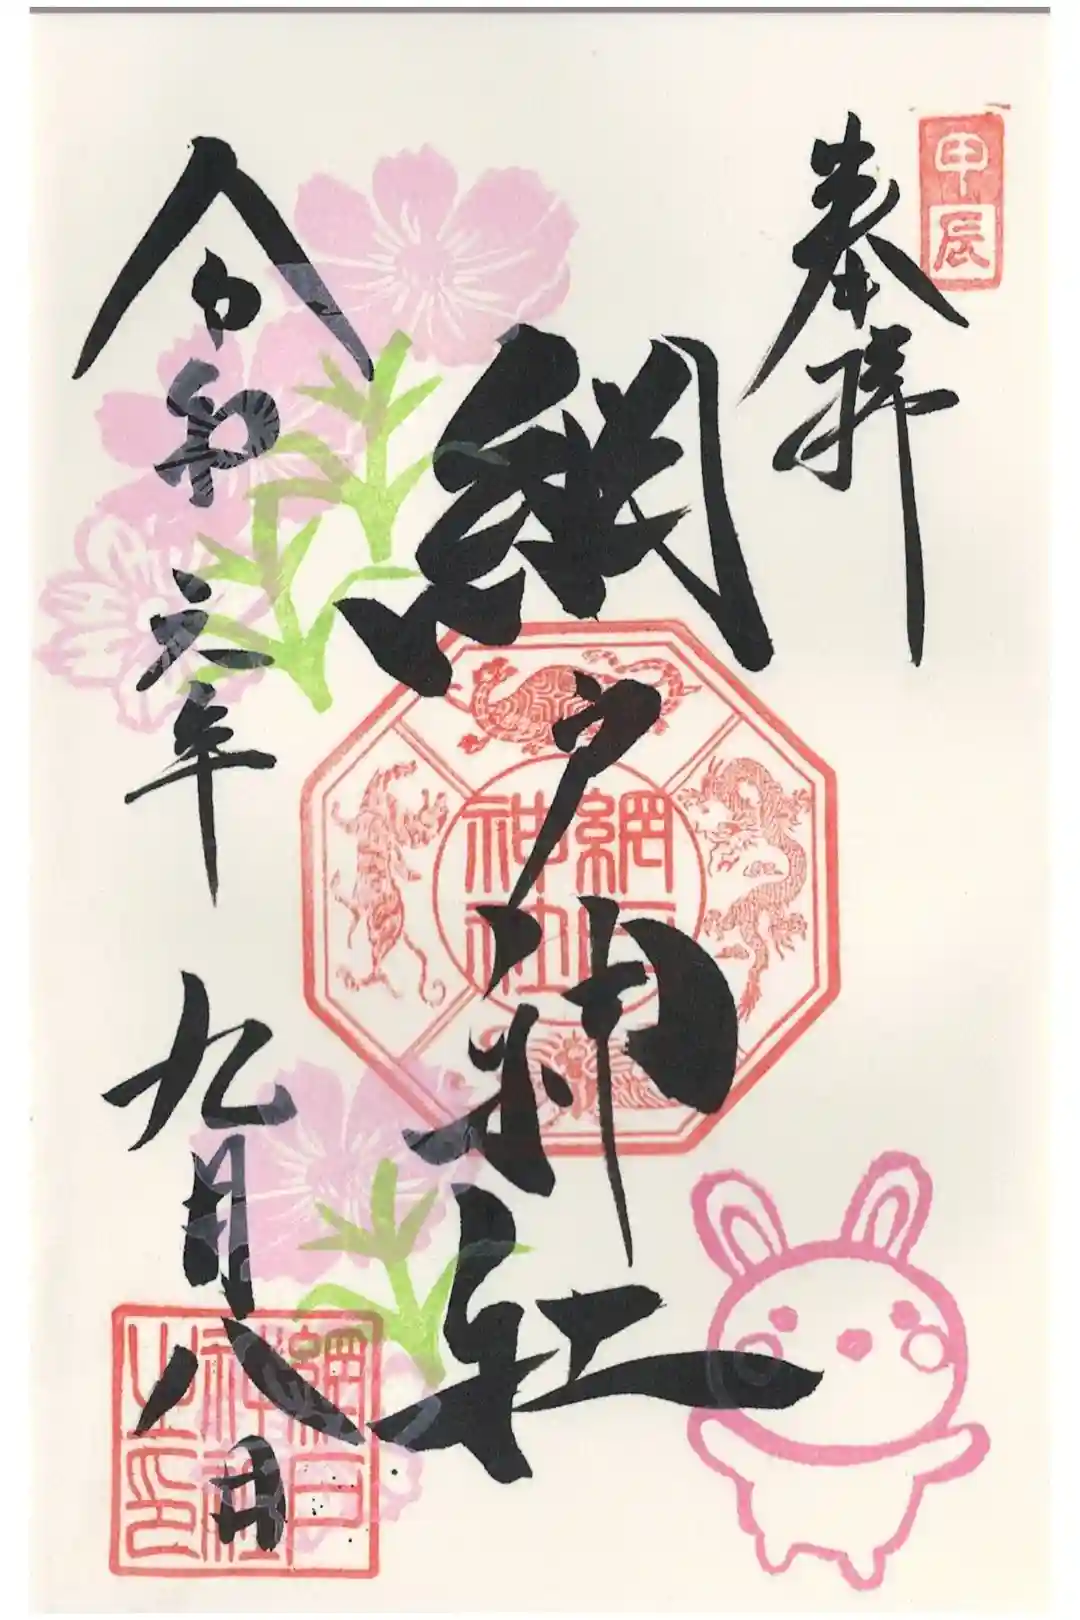 甲辰
奉拝
網戸神社
網戸神社
令和六年 九月八日
網戸神社之印